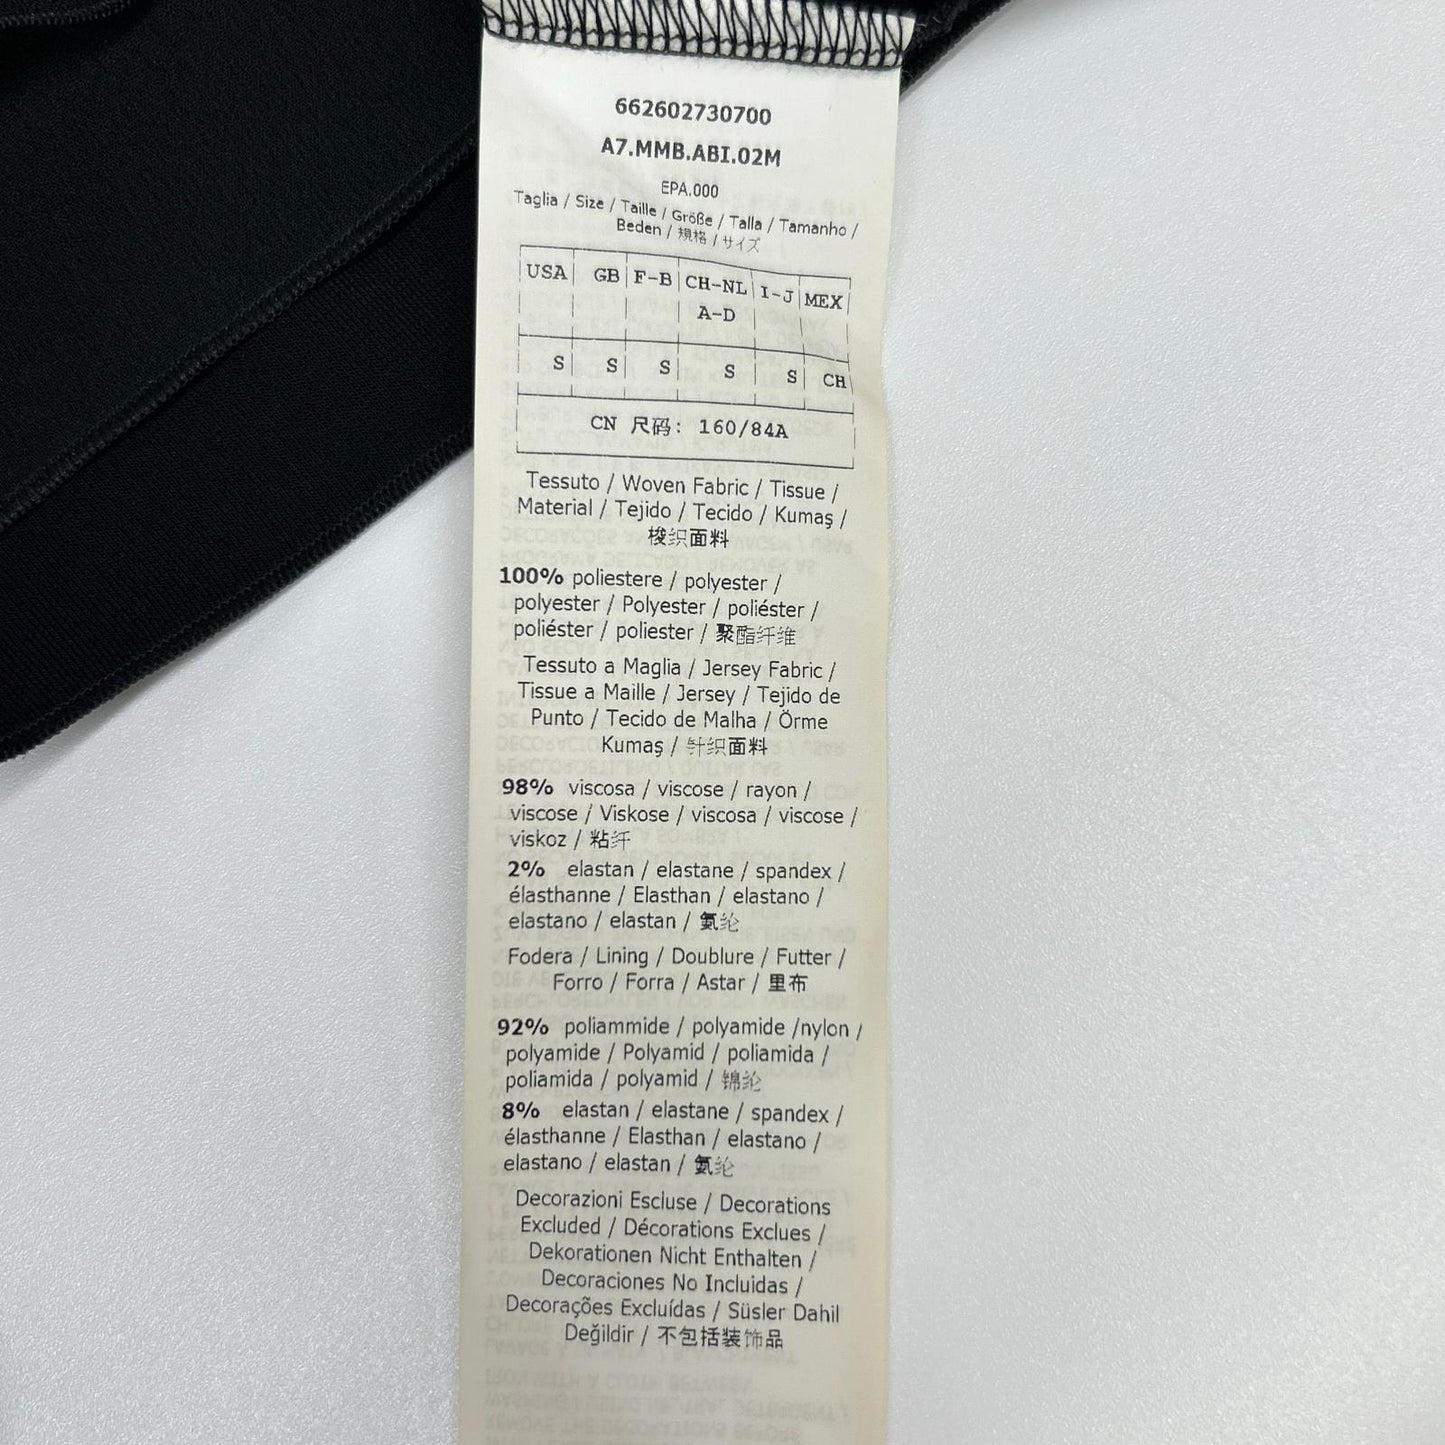 662602730700
A7.MMB.ABI.02M
EPA.000
Taglia / Size / Taille / Größe / Talla / Tamanho /
Beden / 規格 / サイズ
USA GB F-B CH-NL I-J MEX
A-D
S S S S S CH
CN 尺码: 160/84A
Tessuto / Woven Fabric / Tissue /
Material / Tejido / Tecido / Kumaş /
梭织面料
100% poliestere / polyester /
polyester / Polyester / poliéster /
poliéster / poliester / 聚酯纤维
Tessuto a Maglia / Jersey Fabric /
Tissue a Maille / Jersey / Tejido de
Punto / Tecido de Malha / Örme
Kumaş / 针织面料
98% viscosa / viscose / rayon /
viscose / Viskose / viscosa / viscose /
viskoz / 粘纤
2% elastan / elastane / spandex /
élasthanne / Elasthan / elastano /
elastano / elastan / 氨纶
Fodera / Lining / Doublure / Futter /
Forro / Forra / Astar / 里布
92% poliammide / polyamide /nylon /
polyamide / Polyamid / poliamida /
poliamida / polyamid / 锦纶
8% elastan / elastane / spandex /
élasthanne / Elasthan / elastano /
elastano / elastan / 氨纶
Decorazioni Escluse / Decorations
Excluded / Décorations Exclues /
Dekorationen Nicht Enthalten /
Decoraciones No Incluidas /
Decorações Excluídas / Süsler Dahil
Değildir / 不包括装饰品